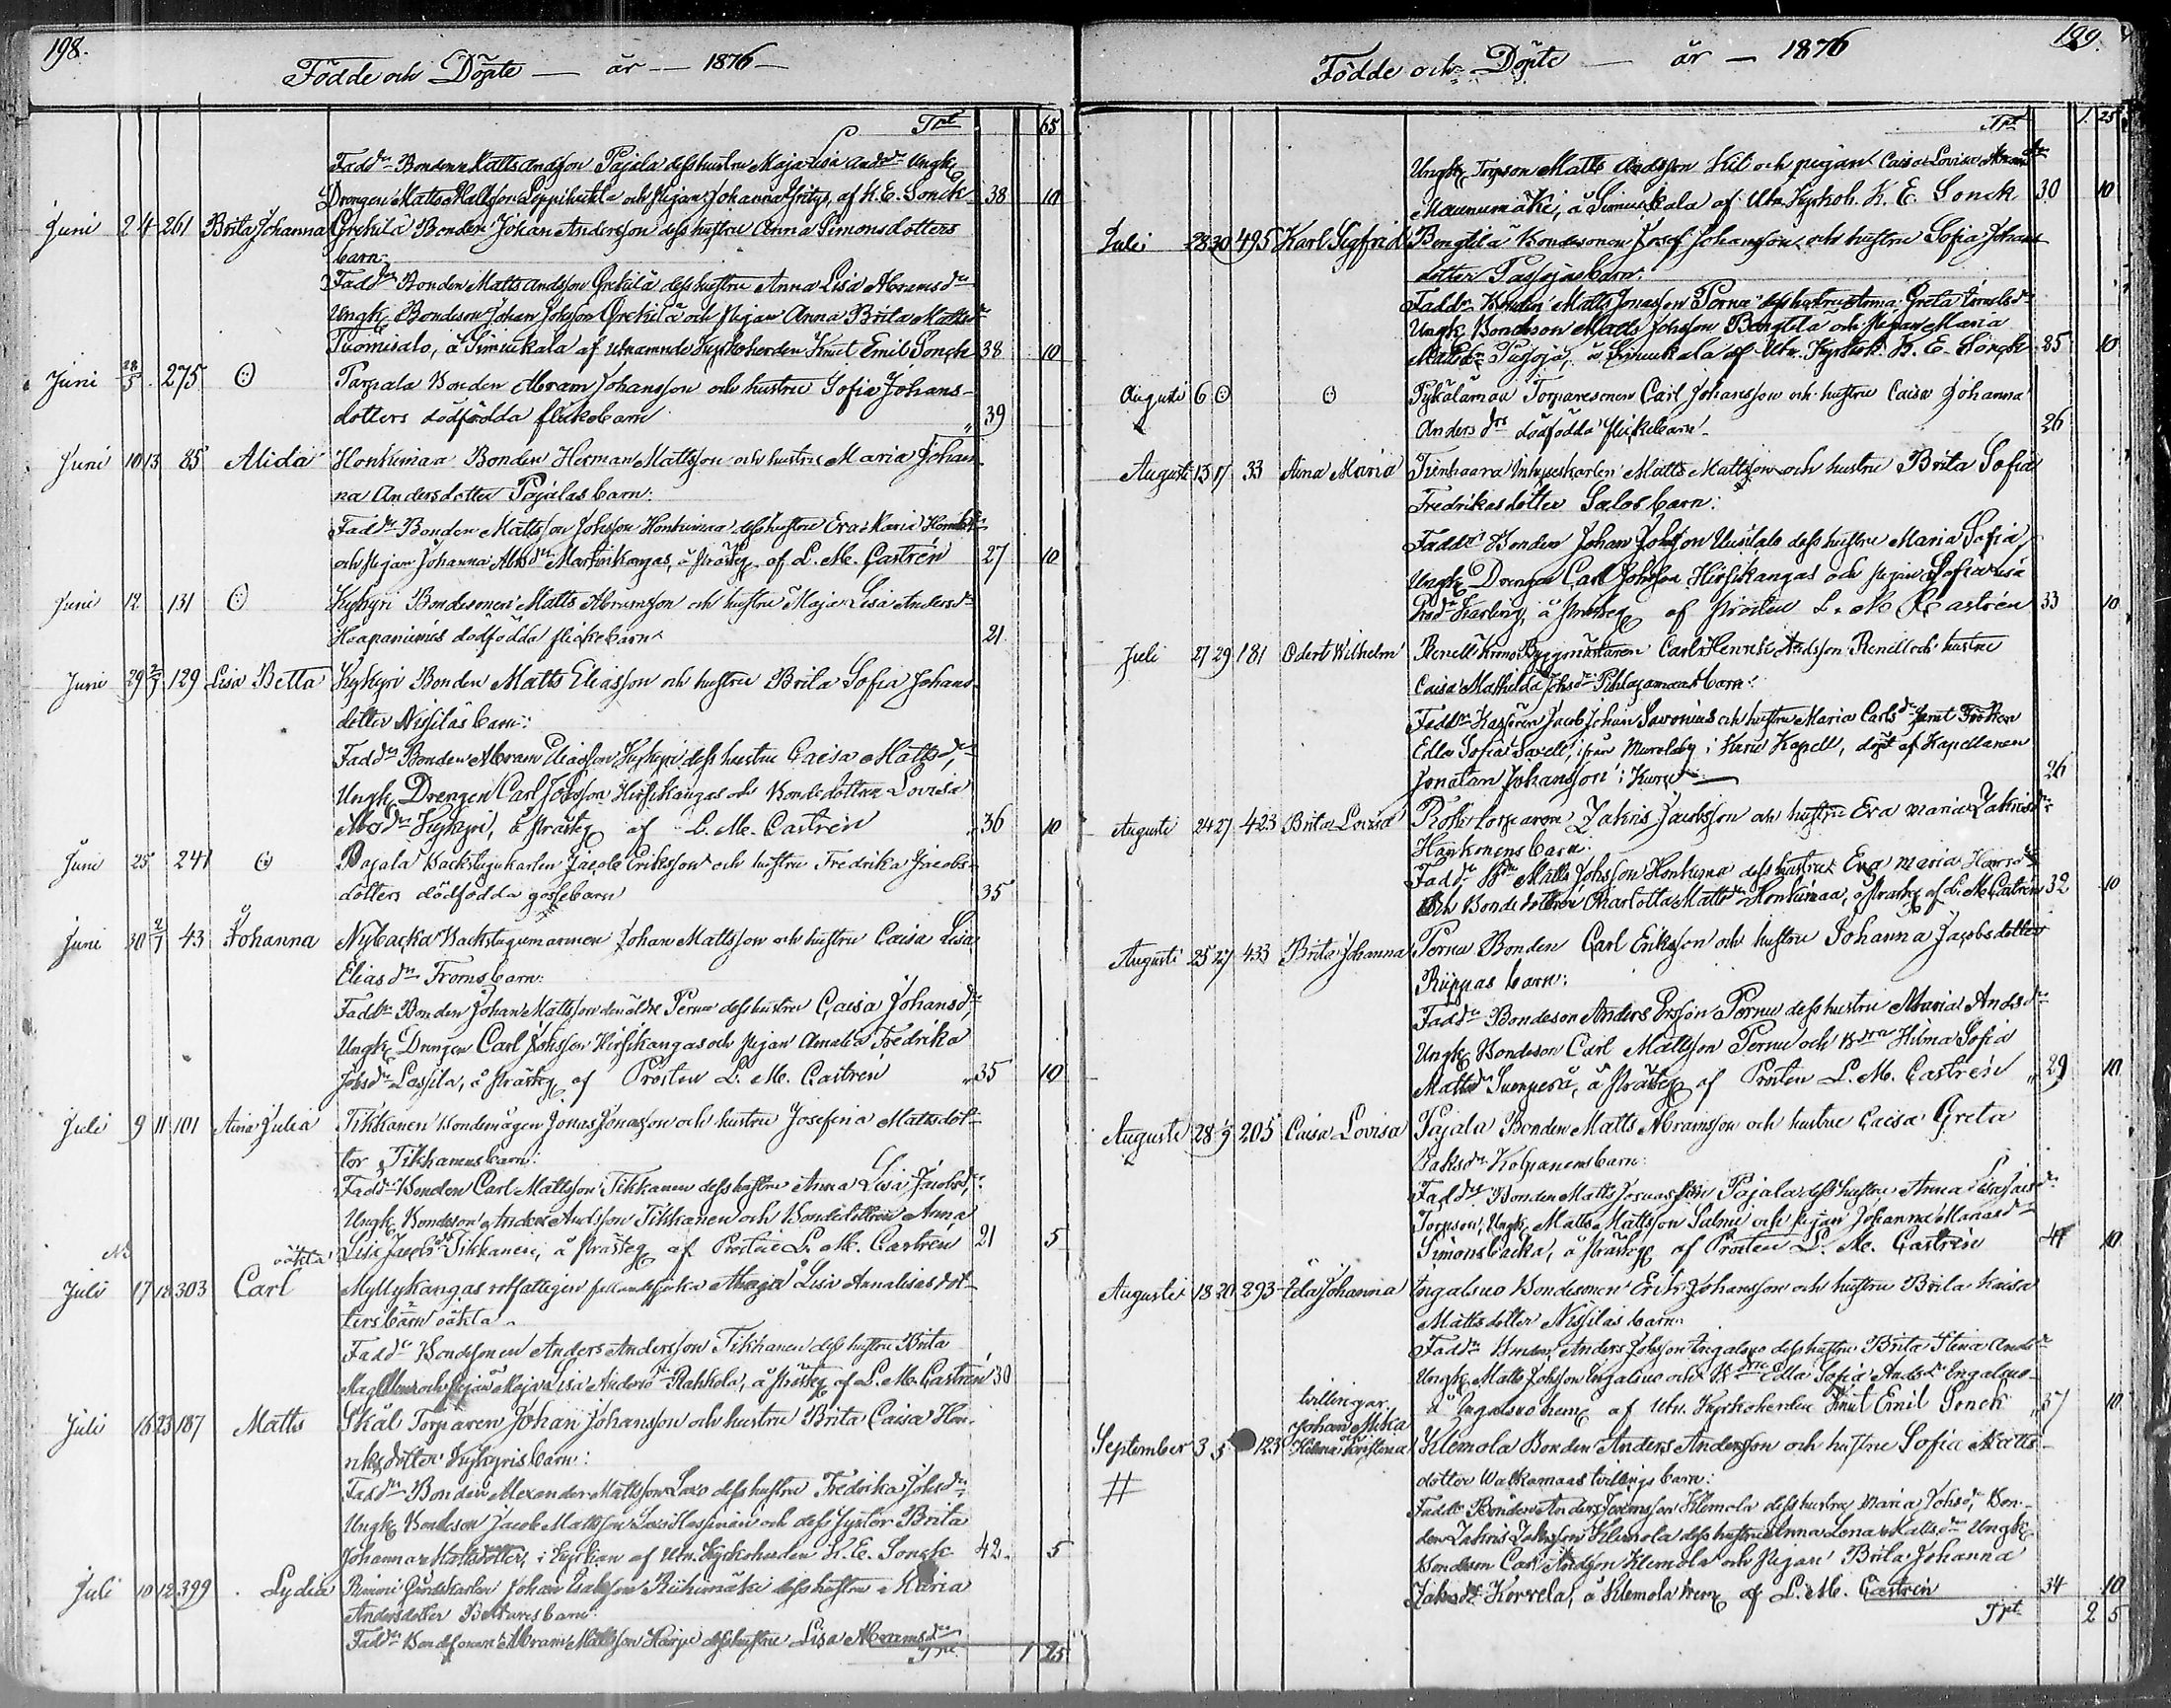 198.
Födde och Döpte — år — 1876 —
Trt 65
Fadd. Bonden Matts Andsson Pajala dess hustru Maja Lisa Andsdr Ungk.
Drengen Matts Mattsson och pigan Johanna af K. E. Sonck 38 10
Juni 2 4 261 Brita Johanna Grekilä Bonden Johan Andersson dess hustru Anna Simonsdotters
barn:
Fadd. Bonden Matts Andsson Grekilä dess hustru Anna Lisa Abramsdr
Ungk. Bondeson Johan Johsson Grekilä och pigan Anna Brita Mattsdr
Tuomisalo, å Simukala af utnämnde Kyrkoherden Knut Emil Sonck 38 10
Juni 28/5 275 Parpala Bonden Abram Johansson och hustru Sofia Johans-
dotters dödfödda flickebarn 39
Juni 10 13 85 Alida Honkimaa Bonden Herman Mattsson och hustru Maria Johan-
na Andersdotter Pajalas barn:
Fadd. Bonden Mattsson Johsson Honkimaa dess hustru Eva Maria
och pigan Johanna Martinkangas, å prästg. af L. M. Castrén 27 10
Juni 12 131 Kykyri Bondesonen Matts Abramsson och hustru Maja Lisa Andersdr
Haapaniemis dödfödda flickebarn 21
Juni 29 2/7 129 Lisa Betta Kykyri Bonden Matts Eliasson och hustru Brita Sofia Johans-
dotter Nissiläs barn:
Fadd. Bonden Abram Eliasson Kykyri dess hustru Caisa Mattsdr,
Ungk. Drengen Carl Johsson Hirsikangas och Bondedottren Lovisa
Abrsdr Kykyri, å prästg. af L. M. Castrén 36 10
Juni 25 241 Pajala Backstugukarlen Jacob Eriksson och hustru Fredrika Jacobs-
dotters dödfödda gossebarn 35
Juni 30 2/7 43 Johanna Nybacka Backstugumannen Johan Mattsson och hustru Caisa Lisa
Eliasdr Froms barn:
Fadd. Bonden Johan Mattsson den äldre Pernu dess hustru Caisa Johansdr,
Ungk. Drengen Carl Johsson Hirsikangas och pigan Amalia Fredrika
Johsdr Lassila, å prästg. af Prosten L. M. Castrén 35 10
Juli 9 11 101 Aina Julia Tikkanen Bondemågen Jonas Jonasson och hustru Josefina Mattsdot-
ter Tikkanens barn:
Fadd. Bonden Carl Mattsson Tikkanen dess hustru Anna Lisa Jacobsdr,
Ungk. Bondeson Anders Andsson Tikkanen och Bondedottren Anna
Lisa Jacobsdr Tikkanen, å prästg. af Prosten L. M. Castrén 21 5
Juli 17 18 303 oäkta Carl Myllykangas rotfattigen Maja Lisa Annalisasdot-
ters barn oäkta
Fadd. Bondsonen Anders Andersson Tikkanen dess hustru Brita
och pigan Maja Lisa Andersdr Rahkola, å prästg. af L. M. Castrén 30
Juli 16 23 187 Matts Skäl Torparen Johan Johansson och hustru Brita Caisa Hen-
riksdotter Kykyris barn:
Fadd. Bonden Alexander Mattsson dess hustru Fredrika Johsdr,
Ungk. Bondeson Jacob Mattsson och dess syster Brita
Johanna Mattsdotter, i kyrkan af Utn. Kyrkoherden K. E. Sonck 42 5
Juli 10 12 399 Lydia Johan Isaksson Riihimäki dess hustru Maria
Andersdotter barn:
Fadd. Bondsonen Abram Mattsson Harju dess hustru Lisa Abramsdr
Trt 1 25
199.
Födde och Döpte — år — 1876
Trt 1. 25
Ungk. Torpson Matts Andsson och pigan Caisa Lovisa
Maunumäki, å Simukala af Utn. Kyrkoh. K. E. Sonck 30 10
Juli 28 30 495 Karl Sigfrid Bengtilä Bondesonen Josef Johansson och hustru Sofia Johans-
dotter Passojas barn:
Fadd. Bonden Matts Jonasson Pernu dess hustru Anna Greta
Ungk. Bondeson Matts Johsson Bengtilä och pigan Maria
Passoja, å Simukala af Utn. Kyrkoh. K. E. Sonck 25 10
Augusti 6 Pykälämaa Torparesonen Carl Johansson och hustru Caisa Johanna
Andersdrs dödfödda flickebarn 26
Augusti 13 17 33 Anna Maria Tienhaara Inhyseskarlen Matts Mattsson och hustru Brita Sofia
Fredriksdotter Salos barn:
Fadd. Bonden Johan Johsson Uusitalo dess hustru Maria Sofia,
Ungk. Drengen Carl Johsson Hirsikangas och pigan Sofia Lisa
å prästg. af Prosten L. M. Castrén 33 10
Juli 27 29 181 Odert Wilhelm Renell Byggmästaren Carl Henrik Andsson Renell och hustru
Caisa Mathilda Johsdr Pihlajamaas barn:
Fadd. Jacob Johan Savonius och hustru Maria Carlsdr samt Fröken
Edla Sofia Savell, ifrån Muroleby i Kuru Kapell, döpt af Kapellanen
Jonatan Johansson i Kuru 26
Augusti 24 27 423 Brita Lovisa Torparen Zakris Jacobsson och hustru Eva Maria Zakrisdr
barn:
Fadd. Bdn Matts Johsson Honkimaa dess hustru Eva Maria
och Bondedottren Charlotta Mattsdr Honkimaa, å prästg. af L. M. Castrén 32 10
Augusti 25 27 433 Brita Johanna Pernu Bonden Carl Eriksson och hustru Johanna Jacobsdotter
Riippas barn:
Fadd. Bondeson Anders Ersson Pernu dess hustru Maria Andsdr
Ungk. Bondeson Carl Mattsson Pernu och Hilma Sofia
Mattsdr Suonperä, å prästg. af Prosten L. M. Castrén 29 10
Augusti 28 1/9 205 Caisa Lovisa Pajala Bonden Matts Abramsson och hustru Caisa Greta
Isaksdr Kolpanens barn:
Fadd. Bonden Matts Pajala dess hustru Anna Lisa
Torpson, Ungk. Matts Mattsson Salmi och pigan Johanna
Simonsbacka, å prästg. af Prosten L. M. Castrén 41 10
Augusti 18 20 293 Johanna Ingalsuo Bondesonen Erik Johansson och hustru Brita Kaisa
Mattsdotter Nissiläs barn:
Fadd. Bonden Anders Johsson Ingalsuo dess hustru Brita Stina Andsdr
Ungk. Matts Johsson Ingalsuo och Edla Sofia Andsdr Ingalsuo
å Ingalsuo hem. af Utn. Kyrkoherden Knut Emil Sonck 37 10
September 3 5 123 tvillingar Johan Mika och Hilma Kristina Klemola Bonden Anders Andersson och hustru Sofia Matts-
#
dotter Walkamaas tvillingsbarn:
Fadd. Bonden Anders Klemola dess hustru Maria Johsdr, Bon-
den Zakris Zakrisson Klemola dess hustru Anna Lena Mattsdr Ungk.
Bondeson Carl Andsson Klemola och pigan Brita Johanna
Korvela, å Klemola hem. af L. M. Castrén 34 10
Trt 2 5